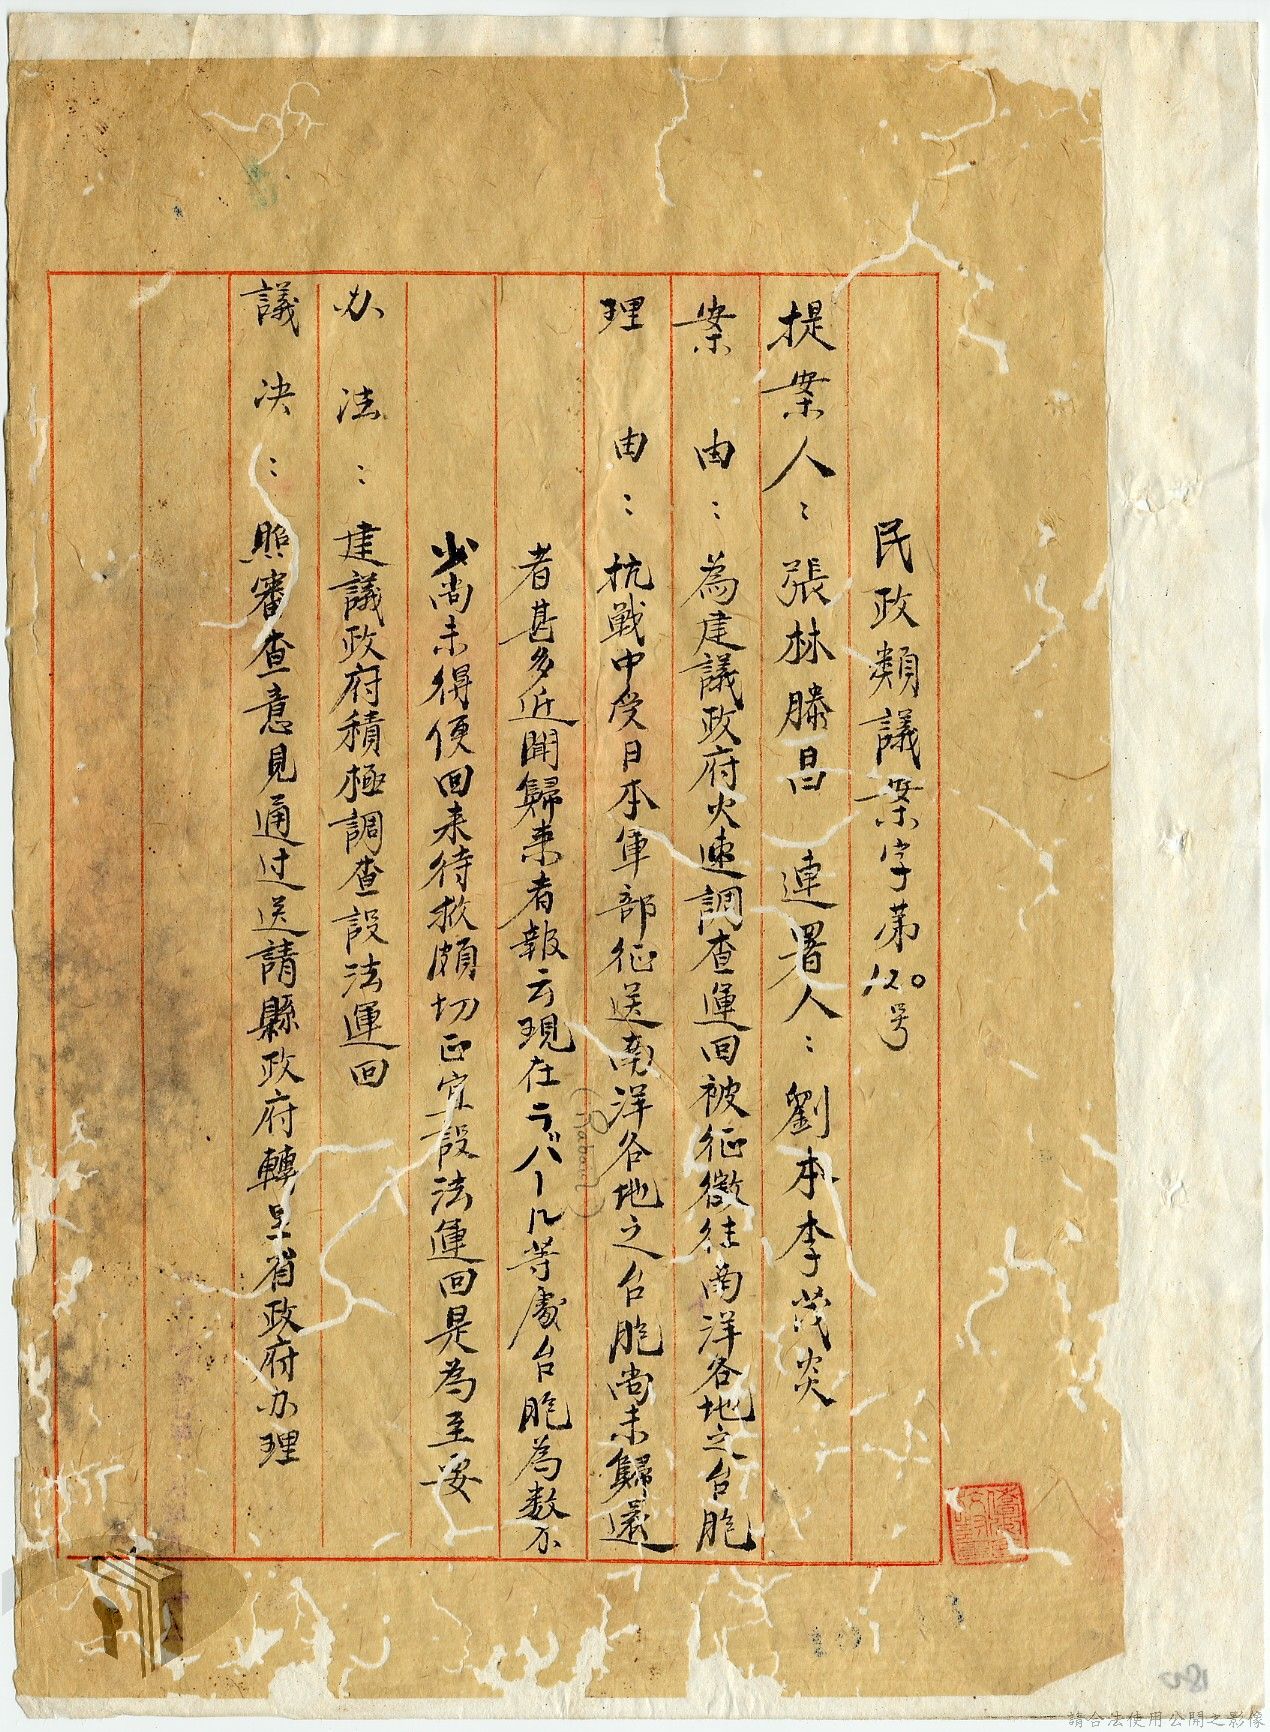 民政類議案字第120号
提案人：張林滕昌　連署人：劉本李茂炎
案由：為建議政府火速調查運回被征徵往南洋各地之台胞
理由：抗戰中受日本軍部征送南洋各地之台胞尚未歸還
者甚多近聞歸来者報云現在ラバール等處台胞為数不
(Rabaul)
少尚未得便回来待救頗切正宜設法運回是為至妥
办法：建議政府積極調查設法運回
議決：照審查意見通过送請縣政府轉呈省政府办理
請合法使用公開之影像